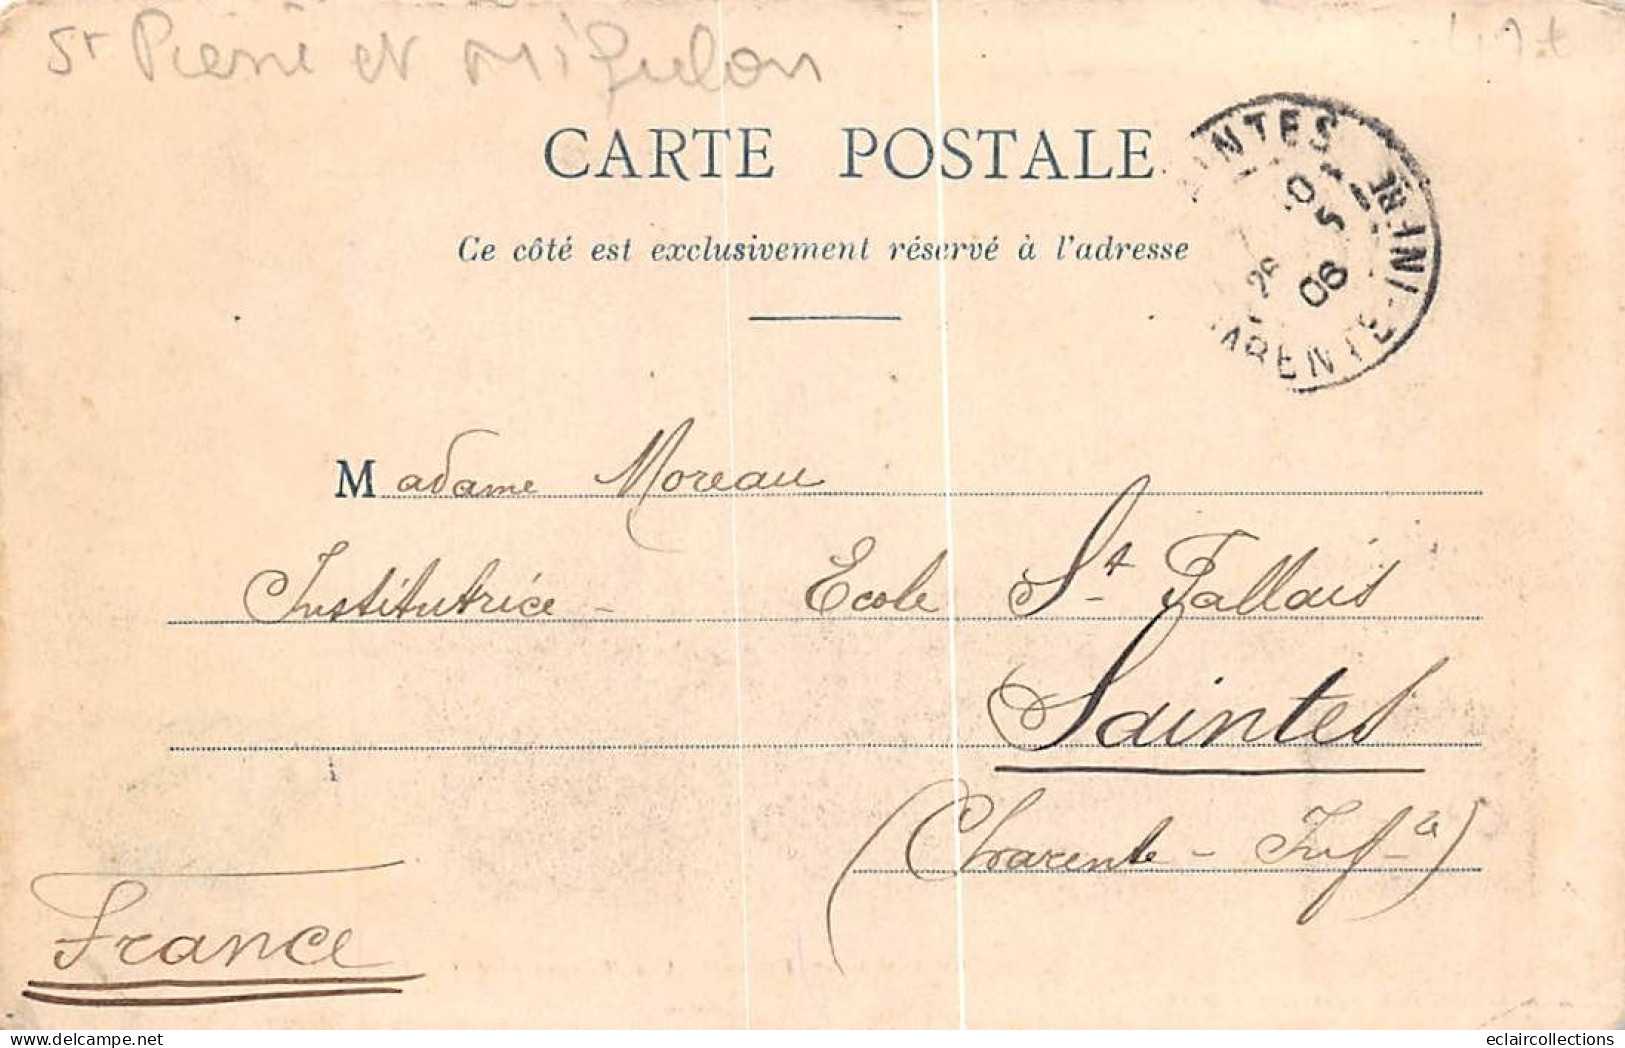 St Pierre et Miquelon
CARTE POSTALE
Ce côté est exclusivement réservé à l'adresse
SAINTES
26 5 06
CHARENTE-INFRE
Madame Moreau
Institutrice - Ecole St Pallais
Saintes
(Charente - Infre)
France
eclaircollections